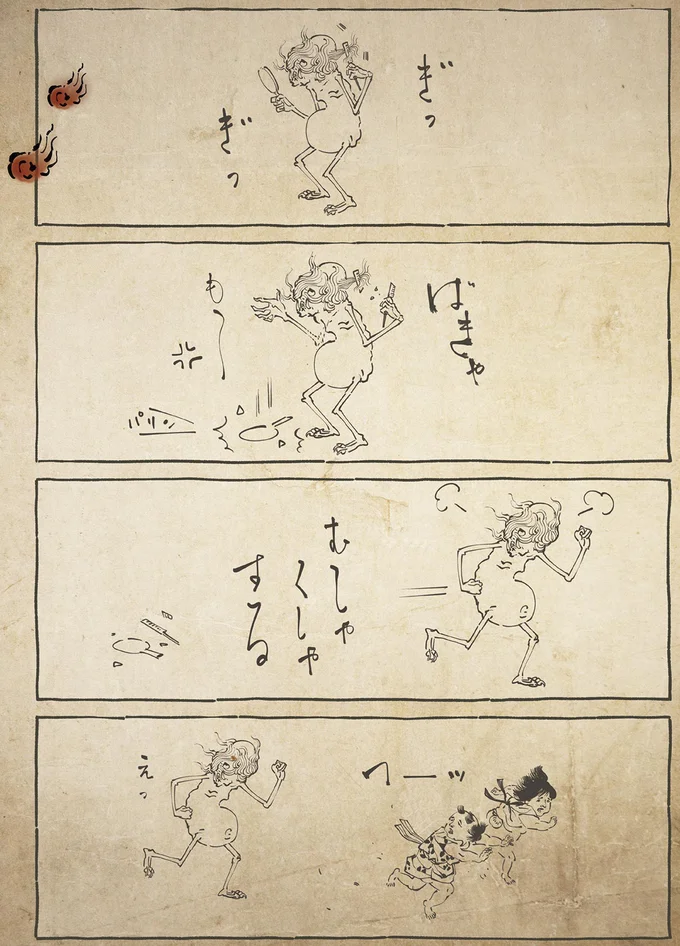 ぎっ
ぎっ
ばきゃ
も〜
パリン
むしゃ
くしゃ
する
ワーッ
えっ